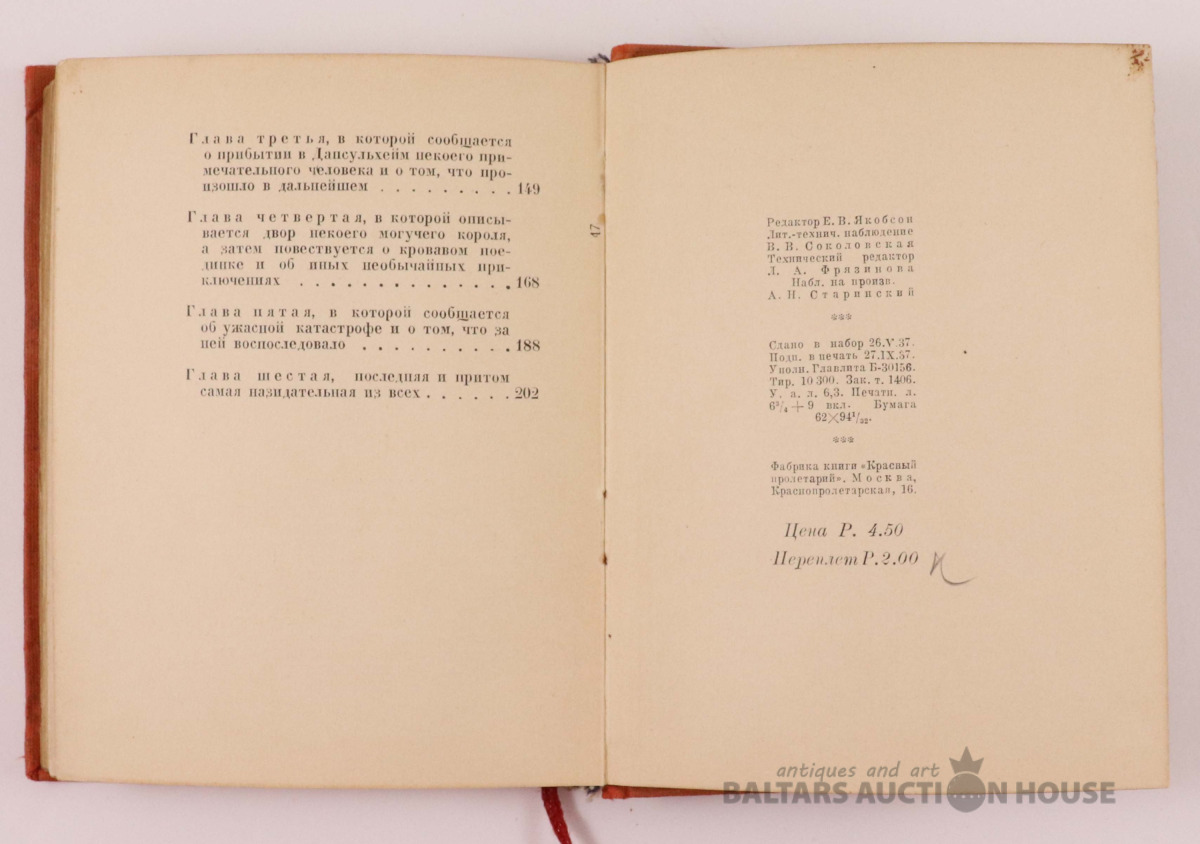 Глава третья, в которой сообщается
о прибытии в Дапсульхейм некоего при-
мечательного человека и о том, что про-
изошло в дальнейшем . . . . . . . . . 149
Глава четвертая, в которой описы-
вается двор некоего могучего короля,
а затем повествуется о кровавом пое-
динке и об иных необычайных при-
ключениях . . . . . . . . . . . . . . 168
Глава пятая, в которой сообщается
об ужасной катастрофе и о том, что за
ней воспоследовало . . . . . . . . . . 188
Глава шестая, последняя и притом
самая назидательная из всех . . . . . . 202
47
Редактор Е. В. Якобсон
Лит.-технич. наблюдение
В. В. Соколовская
Технический редактор
Л. А. Фрязинова
Набл. на произв.
А. Н. Старинский
***
Сдано в набор 26.V.37.
Подп. в печать 27.IX.37.
Уполн. Главлита Б-30156.
Тир. 10 300. Зак. т. 1406.
У. а. л. 6,3. Печатн. л.
6³/₄ + 9 вкл. Бумага
62×94¹/₃₂.
***
Фабрика книги «Красный
пролетарий». Москва,
Краснопролетарская, 16.
Цена Р. 4.50
Переплет Р. 2.00
antiques and art
BALTARS AUCTION HOUSE